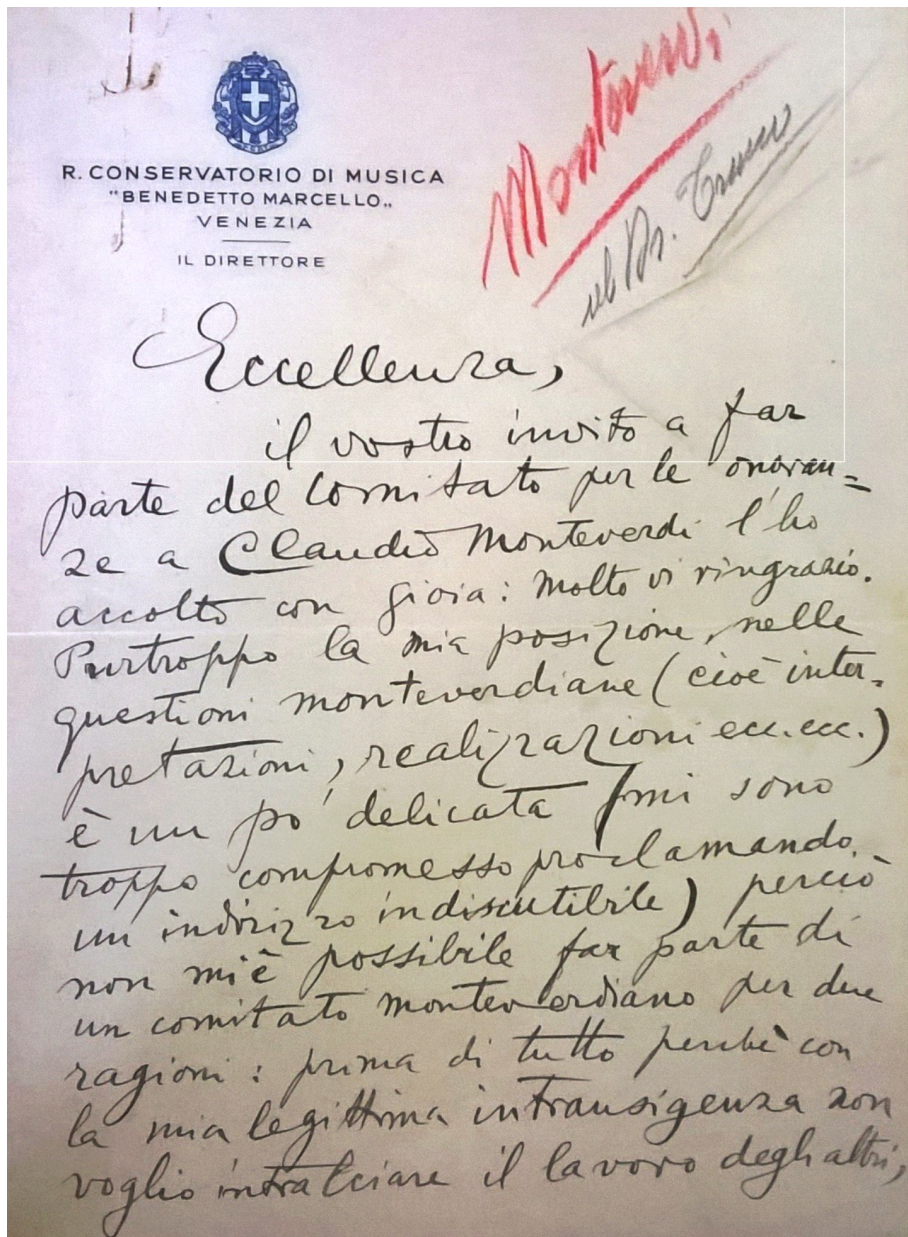 R. CONSERVATORIO DI MUSICA
"BENEDETTO MARCELLO„
VENEZIA
IL DIRETTORE
Monteverdi
al Dr.
Eccellenza,
il vostro invito a far
parte del Comitato per le onoran=
ze a Claudio Monteverdi l'ho
accolto con gioia: molto vi ringrazio.
Purtroppo la mia posizione, nelle
questioni monteverdiane (cioè inter=
pretazioni, realizzazioni ecc. ecc.)
è un po' delicata (mi sono
troppo compromesso proclamando
un indirizzo indiscutibile) perciò
non mi è possibile far parte di
un comitato monteverdiano per due
ragioni: prima di tutto perchè con
la mia legittima intransigenza non
voglio intralciare il lavoro degli altri,